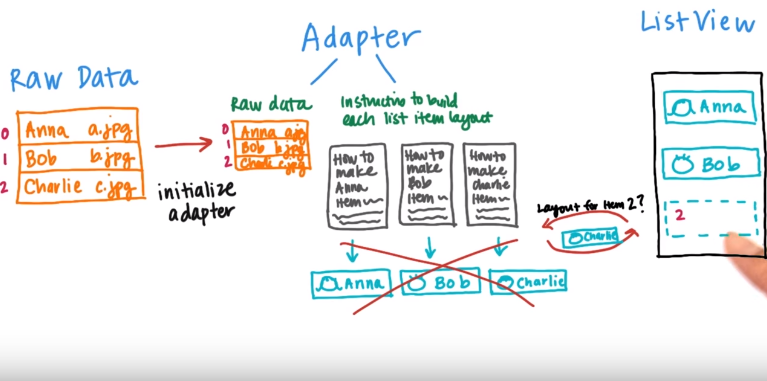 Adapter
ListView
Raw Data
0 Anna a.jpg
1 Bob b.jpg
2 Charlie c.jpg
initialize
adapter
Raw data
0 Anna a.jpg
1 Bob b.jpg
2 Charlie c.jpg
to build
each list item layout
How to
make
Anna
Item
How to
make
Bob
Item
How to
make
Charlie
Item
Anna
Bob
Charlie
Layout for Item 2?
Charlie
Anna
Bob
2